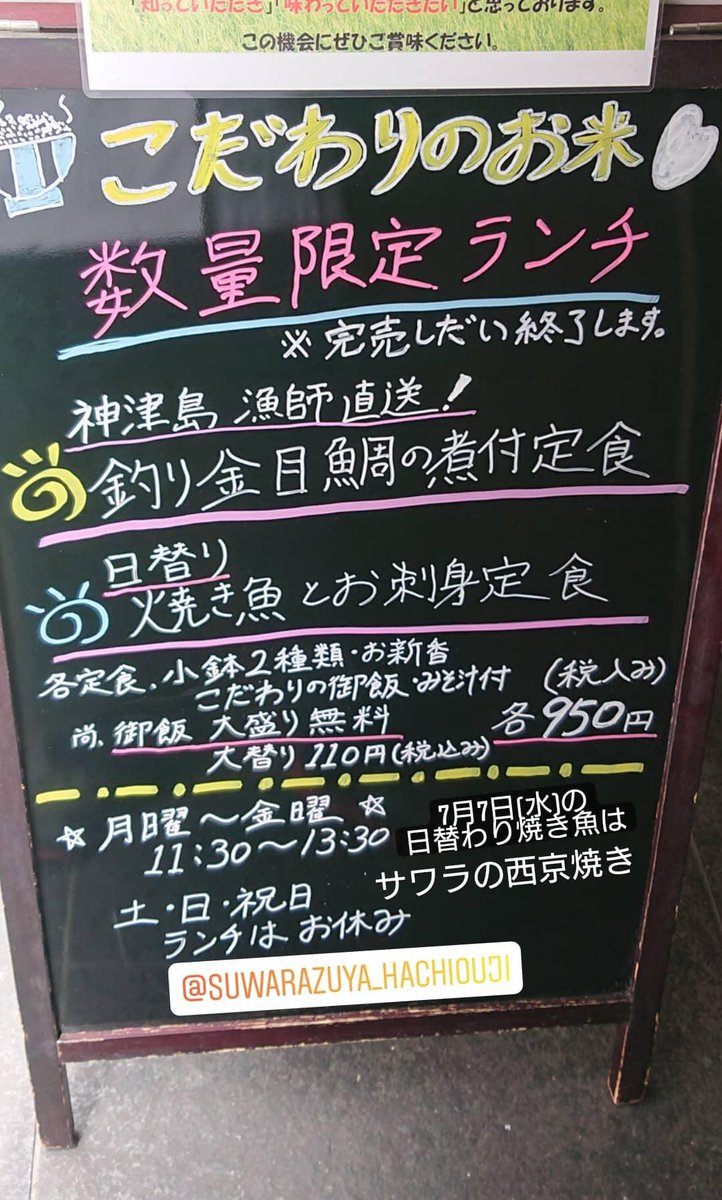 「知っていただき」「味わっていただきたい」と思っております。
この機会にぜひご賞味ください。
こだわりのお米
数量限定ランチ
※完売しだい終了します。
神津島 漁師直送！
釣り金目鯛の煮付定食
日替り
焼き魚とお刺身定食
各定食、小鉢2種類・お新香
こだわりの御飯・みそ汁付
(税入み)
尚、御飯 大盛り無料
各950円
大替り110円(税込み)
☆月曜～金曜☆
11:30～13:30
7月7日(水)の
日替わり焼き魚は
サワラの西京焼き
土・日・祝日
ランチはお休み
@SUWARAZUYA_HACHIOUJI